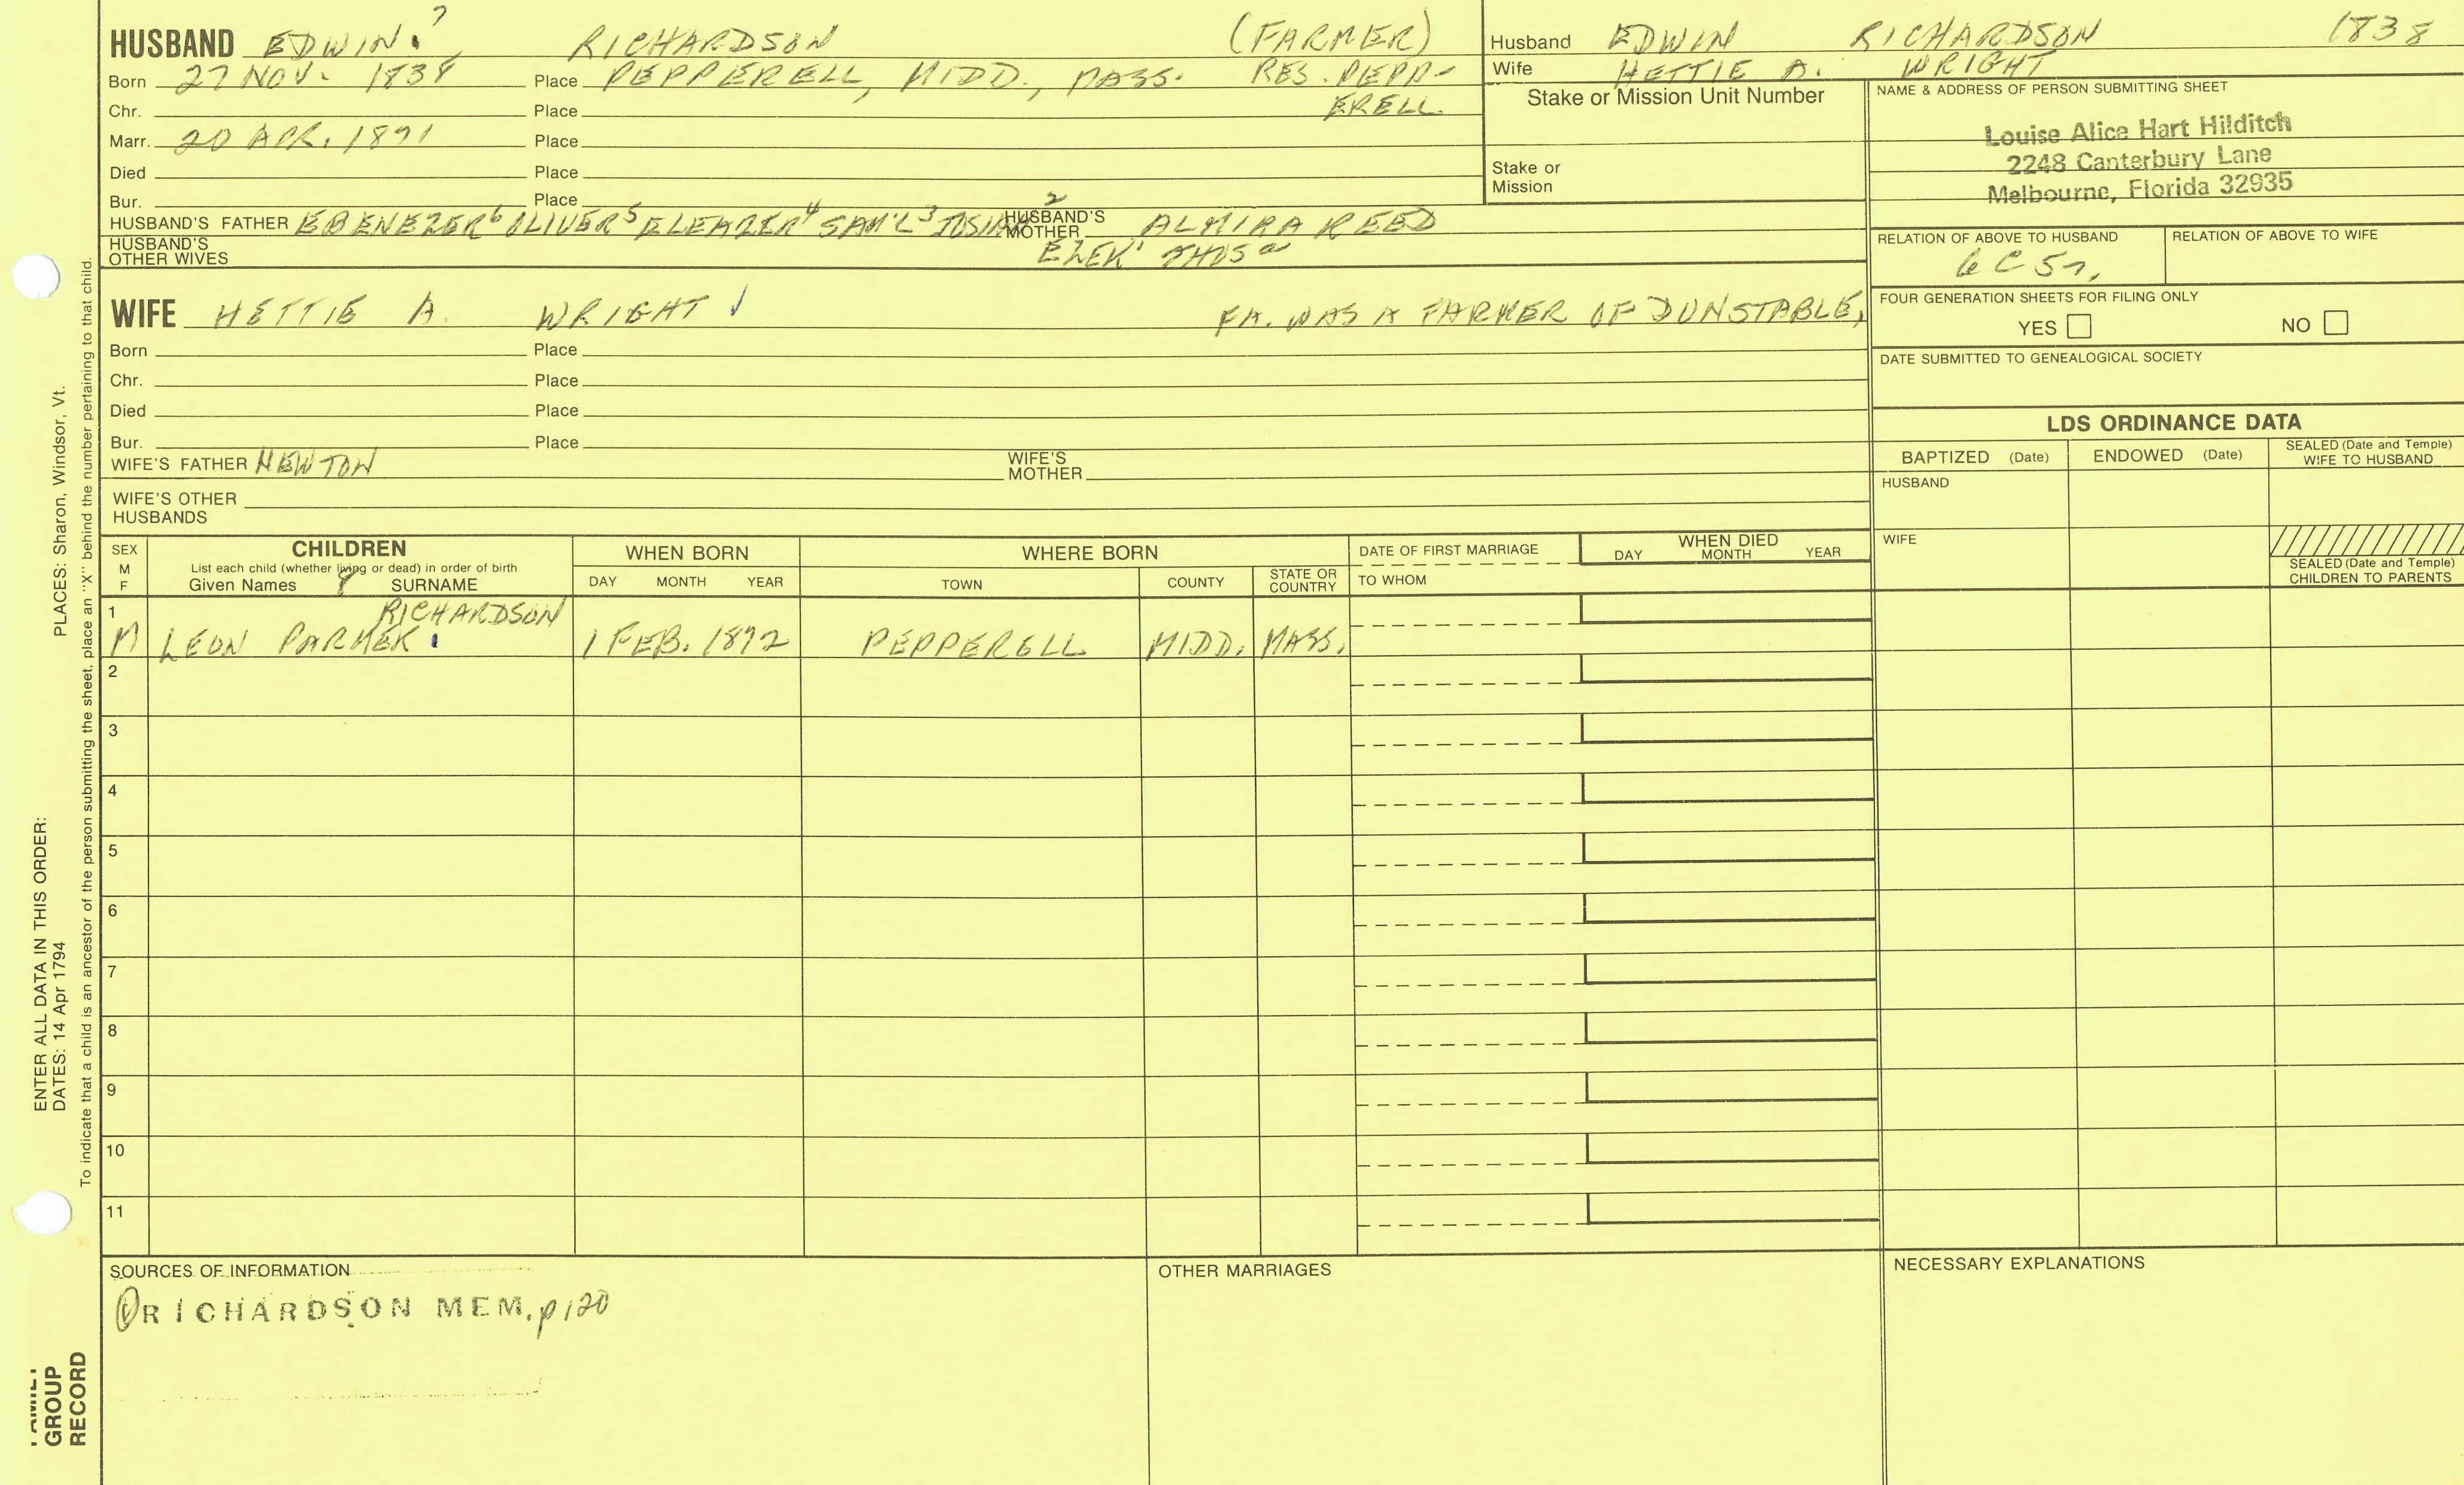 HUSBAND EDWIN.7 RICHARDSON (FARMER)
Born 27 NOV. 1838 Place PEPPERELL, MIDD., MASS. RES. PEPP-
Chr. Place ERELL.
Marr. 20 APR. 1891 Place
Died Place
Bur. Place
HUSBAND'S FATHER EBENEZER6 OLIVER5 ELEAZER4 SAM'L3 JOSIAH2 HUSBAND'S MOTHER ALMIRA REED
HUSBAND'S OTHER WIVES EZEK1 THOSa
Husband EDWIN RICHARDSON 1838
Wife HETTIE A. WRIGHT
Stake or Mission Unit Number
Stake or
Mission
NAME & ADDRESS OF PERSON SUBMITTING SHEET
Louise Alice Hart Hilditch
2248 Canterbury Lane
Melbourne, Florida 32935
RELATION OF ABOVE TO HUSBAND RELATION OF ABOVE TO WIFE
6C5r,
WIFE HETTIE A. WRIGHT ✓ FA. WAS A FARMER OF DUNSTABLE,
Born Place
Chr. Place
Died Place
Bur. Place
WIFE'S FATHER NEWTON WIFE'S MOTHER
WIFE'S OTHER
HUSBANDS
FOUR GENERATION SHEETS FOR FILING ONLY
YES NO
DATE SUBMITTED TO GENEALOGICAL SOCIETY
LDS ORDINANCE DATA
BAPTIZED (Date) ENDOWED (Date) SEALED (Date and Temple) WIFE TO HUSBAND
HUSBAND
WIFE
SEALED (Date and Temple)
CHILDREN TO PARENTS
SEX
M
F
CHILDREN
List each child (whether living or dead) in order of birth
Given Names 8 SURNAME
WHEN BORN
DAY MONTH YEAR
WHERE BORN
TOWN COUNTY STATE OR COUNTRY
DATE OF FIRST MARRIAGE
TO WHOM
WHEN DIED
DAY MONTH YEAR
1 RICHARDSON
M LEON PARKER. 1 FEB. 1892 PEPPERELL MIDD. MASS.
2
3
4
5
6
7
8
9
10
11
SOURCES OF INFORMATION
RICHARDSON MEM. p120
OTHER MARRIAGES
NECESSARY EXPLANATIONS
ENTER ALL DATA IN THIS ORDER:
DATES: 14 Apr 1794 PLACES: Sharon, Windsor, Vt.
To indicate that a child is an ancestor of the person submitting the sheet, place an "X" behind the number pertaining to that child.
FAMILY
GROUP
RECORD